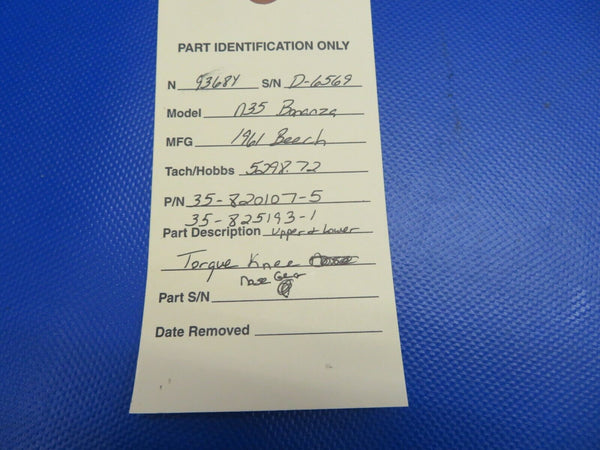 PART IDENTIFICATION ONLY
N 9368Y S/N D-6569
Model N35 Bonanza
MFG 1961 Beech
Tach/Hobbs 5298.72
P/N 35-820107-5
35-825193-1
Part Description Upper & Lower
Torque Knee
Nose Gear
Part S/N
Date Removed